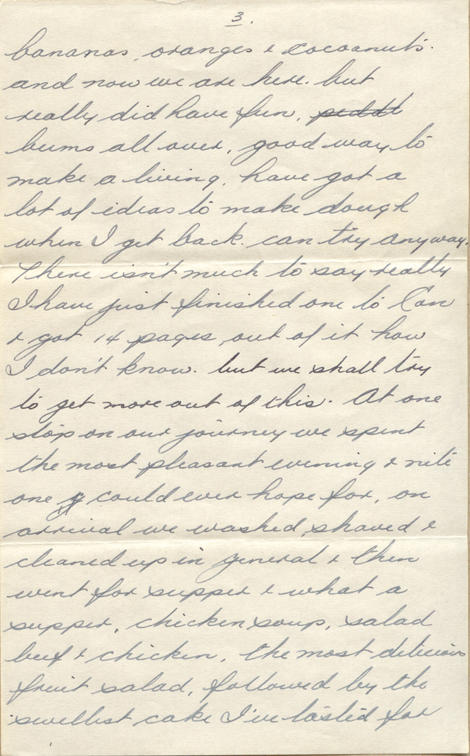 3.
bananas, oranges & cocoanuts.
and now we are here. but
really did have fun,
bums all over, good way to
make a living, have got a
lot of ideas to make dough
when I get back. can try anyway.
There isn't much to say really
I have just finished one to Con
& got 14 pages out of it how
I don't know. but we shall try
to get more out of this. At one
stop on our journey we spent
the most pleasant evening & nite
one could ever hope for, on
arrival we washed, shaved &
cleaned up in general & then
went for supper & what a
supper, chicken soup, salad
beef & chicken, the most delicious
fruit salad, followed by the
swellist cake I've tasted for